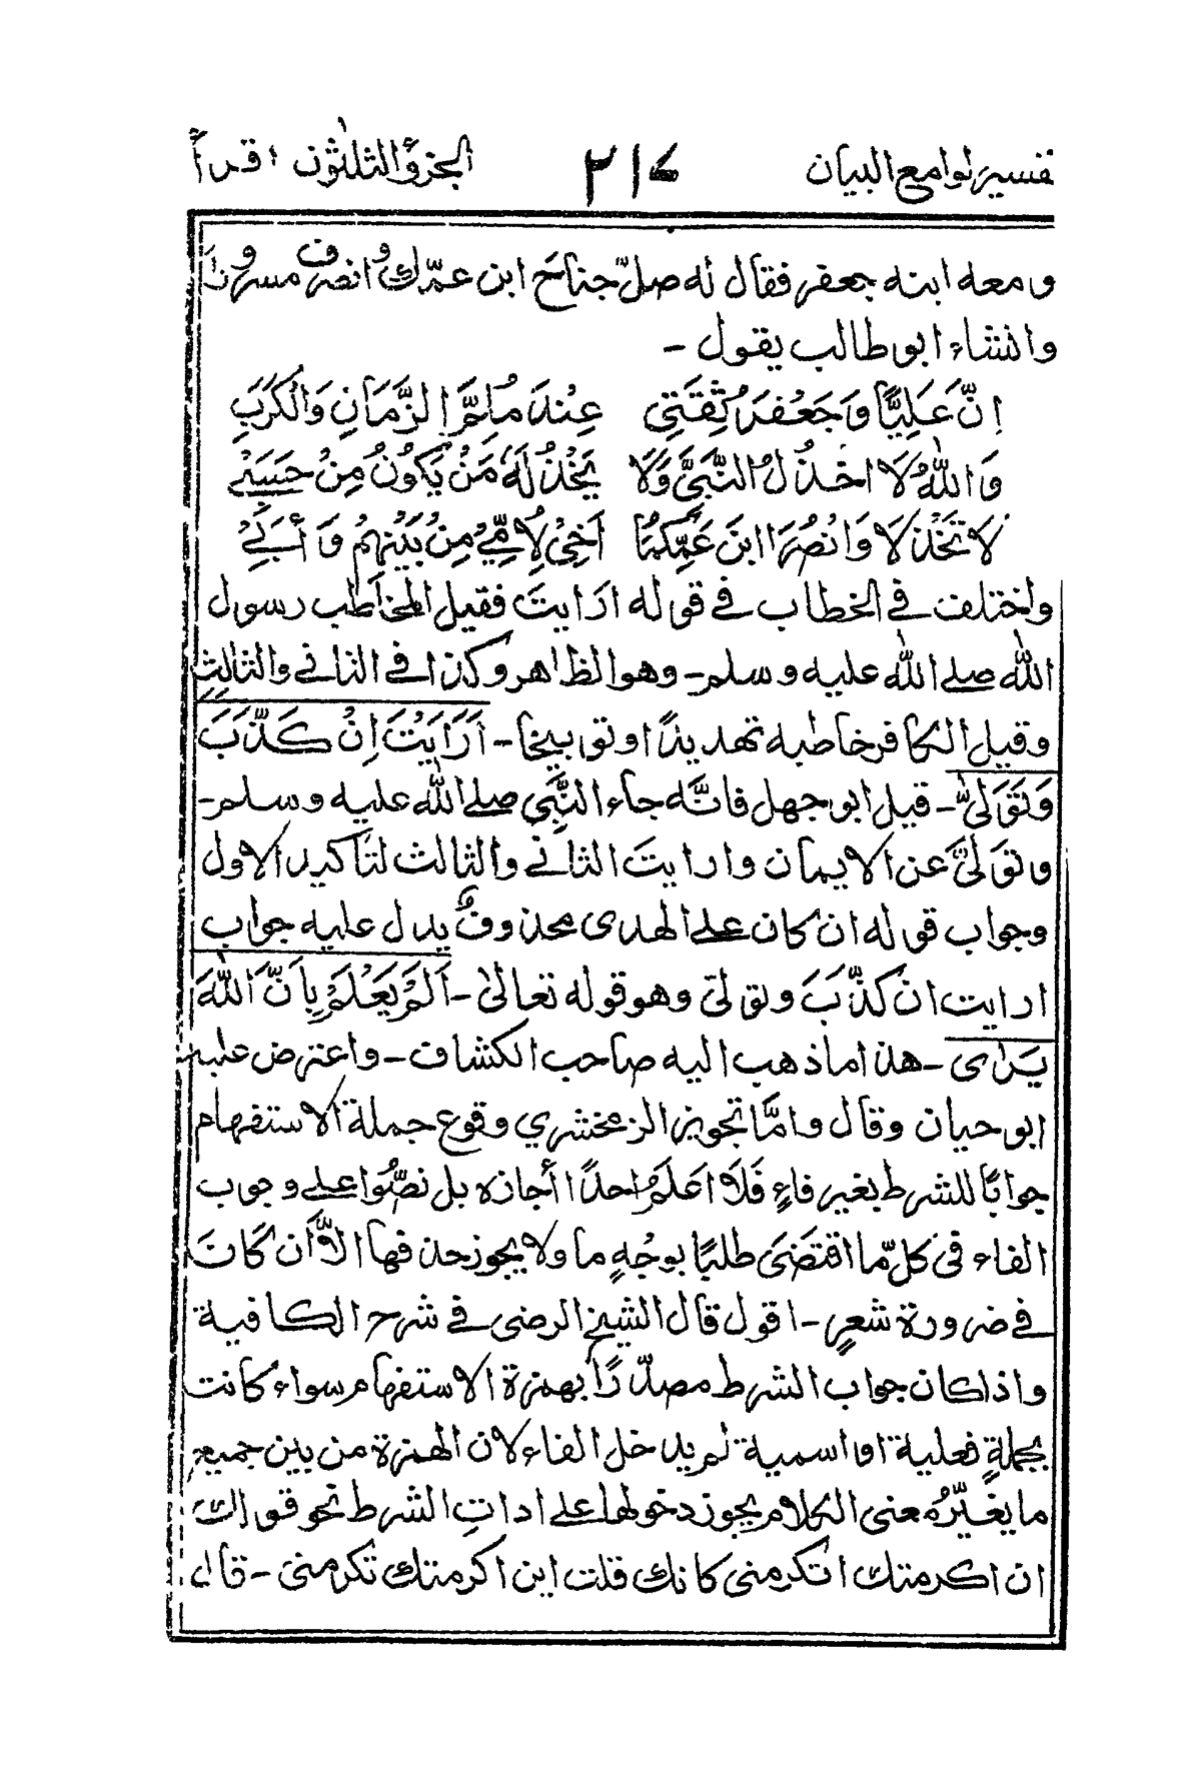 تفسير لوامع البيان ٢١٧ الجزؤ الثلٰثون اقرأ
ومعه ابنه جعفر فقال له صلّ جناحَ ابن عمّك وانصرف مسرورًا
وانشاء ابوطالب يقول -
اِنَّ عَلِيًّا وَجَعْفَرَ ثِقَتِي عِنْدَ مُلِمِّ الزَّمَانِ وَالْكُرَبِ
وَاللّٰهُ لَا اخْذُلُ النَّبِيَّ وَلَا يَخْذُلُهٗ مَنْ يَكُوْنُ مِنْ حَسَبِيْ
لَا تَخْذُلَا وَانْصُرَا ابنَ عَمِّكُمَا اَخِيْ لِاُمِّيْ مِنْ بَيْنِهِمْ وَأَبِيْ
واختلف في الخطاب في قوله ارَايتَ فقيل المخاطب رسول
اللّٰه صلے اللّٰه عليه وسلم - وهو الظاهر وكذا في الثاني والثالثِ
وقيل الكافر خاطبه تهديدًا او توبيخا - اَرَاَيْتَ اِنْ كَذَّبَ
وَتَوَلّٰى - قيل ابوجهل فانّه جاء النَّبِي صلے اللّٰه عليه وسلم -
وتَوَلّٰى عن الايمان وارايتَ الثاني والثالث لتاكيد الاول
وجواب قوله ان كان على الهدى محذوفٌ يدل عليه جواب
ارايت ان كذّبَ وتولّى وهو قوله تعالىٰ - اَلَمْ يَعْلَمْ بِاَنَّ اللّٰهَ
يَرٰى - هذا ما ذهب اليه صاحب الكشاف - واعترض عليه
ابوحيان وقال وامّا تجويز الزمخشري وقوع جملة الاستفهام
جوابًا للشرط بغير فاءٍ فَلَا اعْلَمُ احدًا أجازه بل نصُّوا على وجوب
الفاء في كلّ ما اقتضَى طلبًا بوجْهٍ ما ولا يجوز حذفها الّا ان كَانَ
في ضرورة شعرٍ - اقول قال الشيخ الرضى في شرح الكافية
واذا كان جواب الشرط مصدّرًا بهمزة الاستفهام سواء كانت
بجملةٍ فعلية او اسمية لم يدخل الفاء لان الهمزة من بين جميع
ما يغيّرُ معنى الكلام يجوز دخولها على اداتِ الشرط نحو قولك
ان اكرمتك أتكرمنى كانك قلت اين اكرمتك تكرمنى - قال